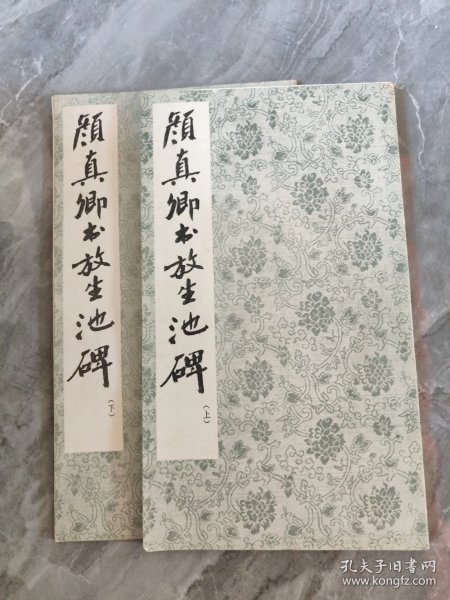 顔真卿书放生池碑
（下）
顔真卿书放生池碑
（上）
孔夫子旧书网
www.kongfz.com